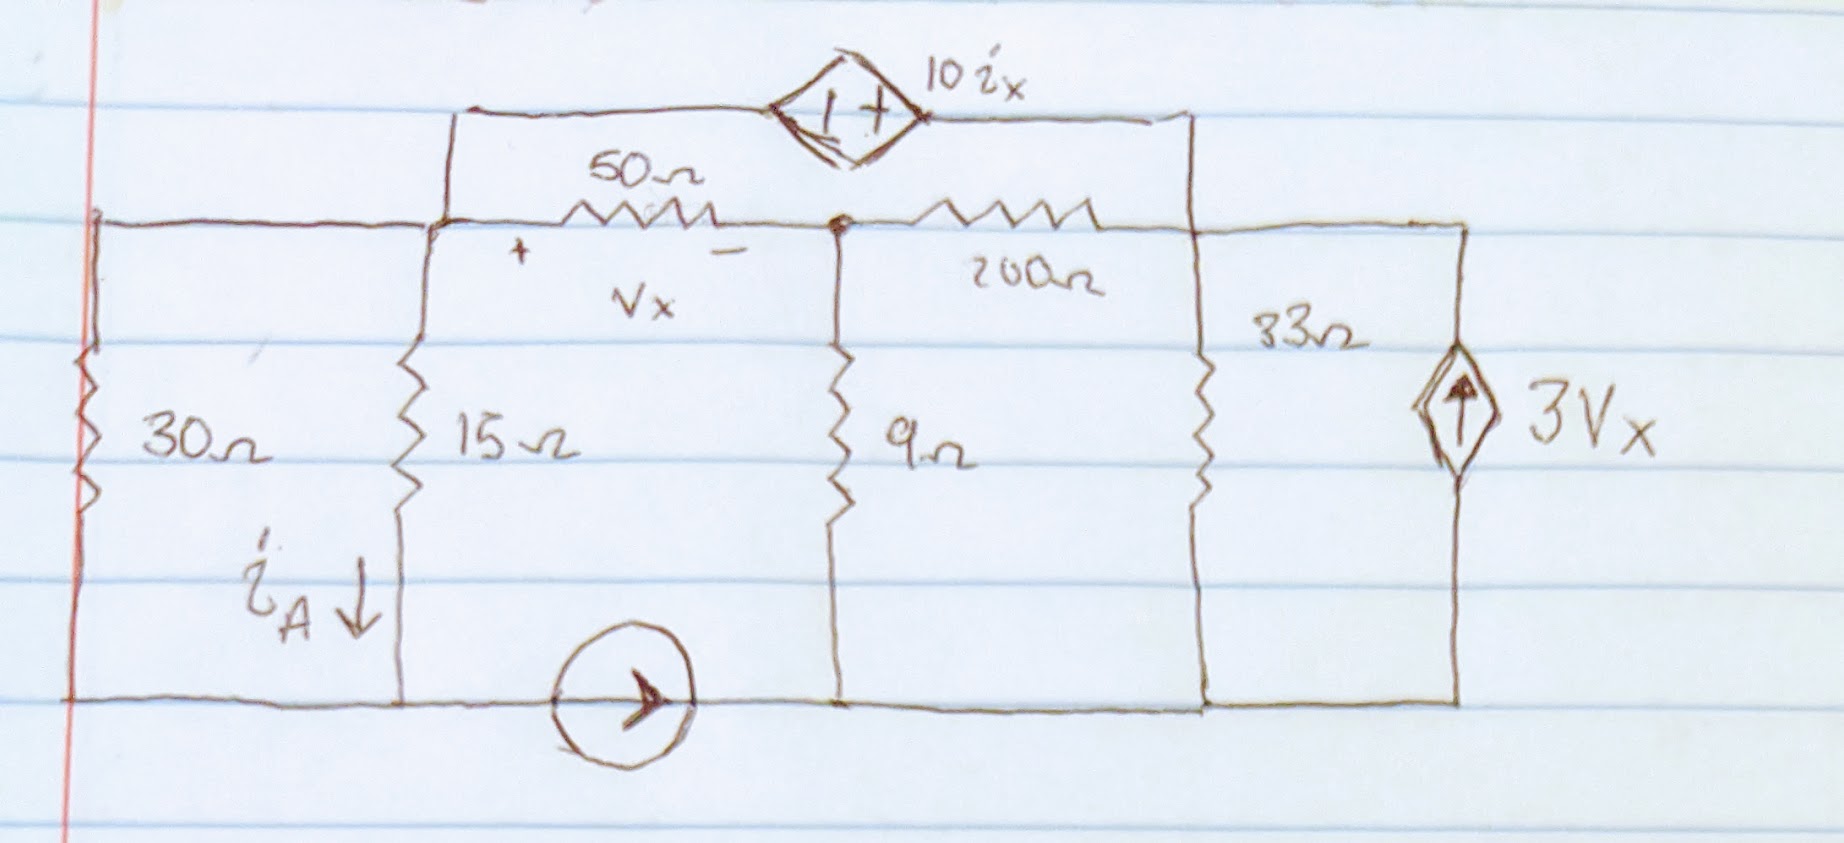 10 ix
50Ω
+ −
Vx
200Ω
33Ω
30Ω
15Ω
9Ω
3Vx
iA
− +